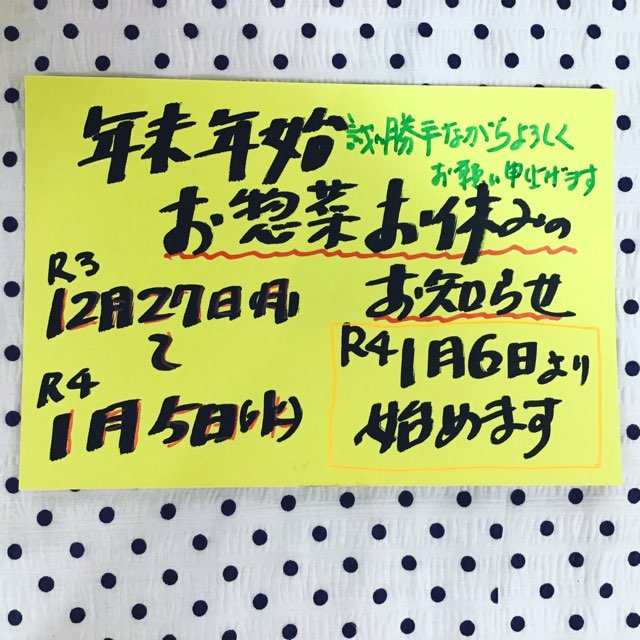 年末年始
誠に勝手ながらよろしく
お願い申上げます
お惣菜お休みの
お知らせ
R3
12月27日(月)
〜
R4
1月5日(水)
R4 1月6日より
始めます